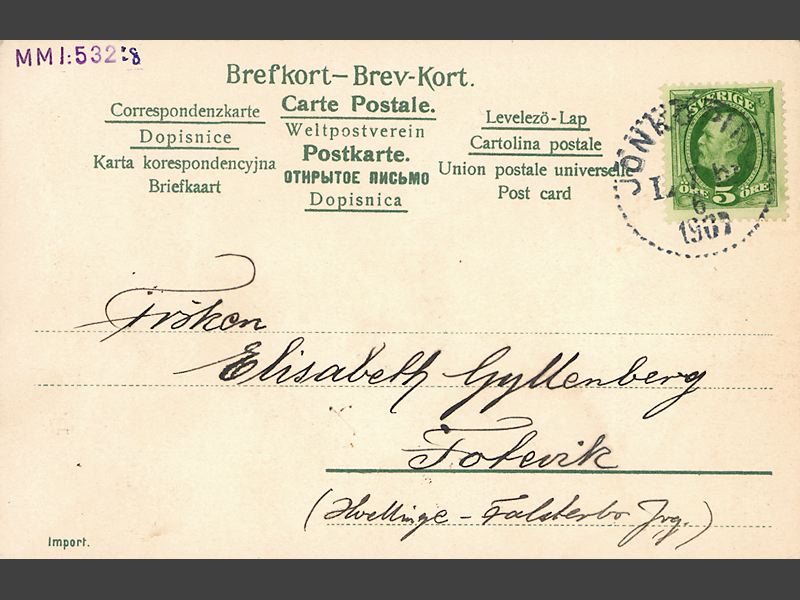 MMI:532:8
Brefkort–Brev-Kort.
Correspondenzkarte
Dopisnice
Karta korespondencyjna
Briefkaart
Carte Postale.
Weltpostverein
Postkarte.
ОТКРЫТОЕ ПИСЬМО
Dopisnica
Levelező-Lap
Cartolina postale
Union postale universelle
Post card
SVERIGE
ÖRE 5 ÖRE
JÖNKÖPING
6
1907
Fröken
Elisabeth Gyllenberg
Fotevik
(Hvellinge - Falsterbo Jvg.)
Import.